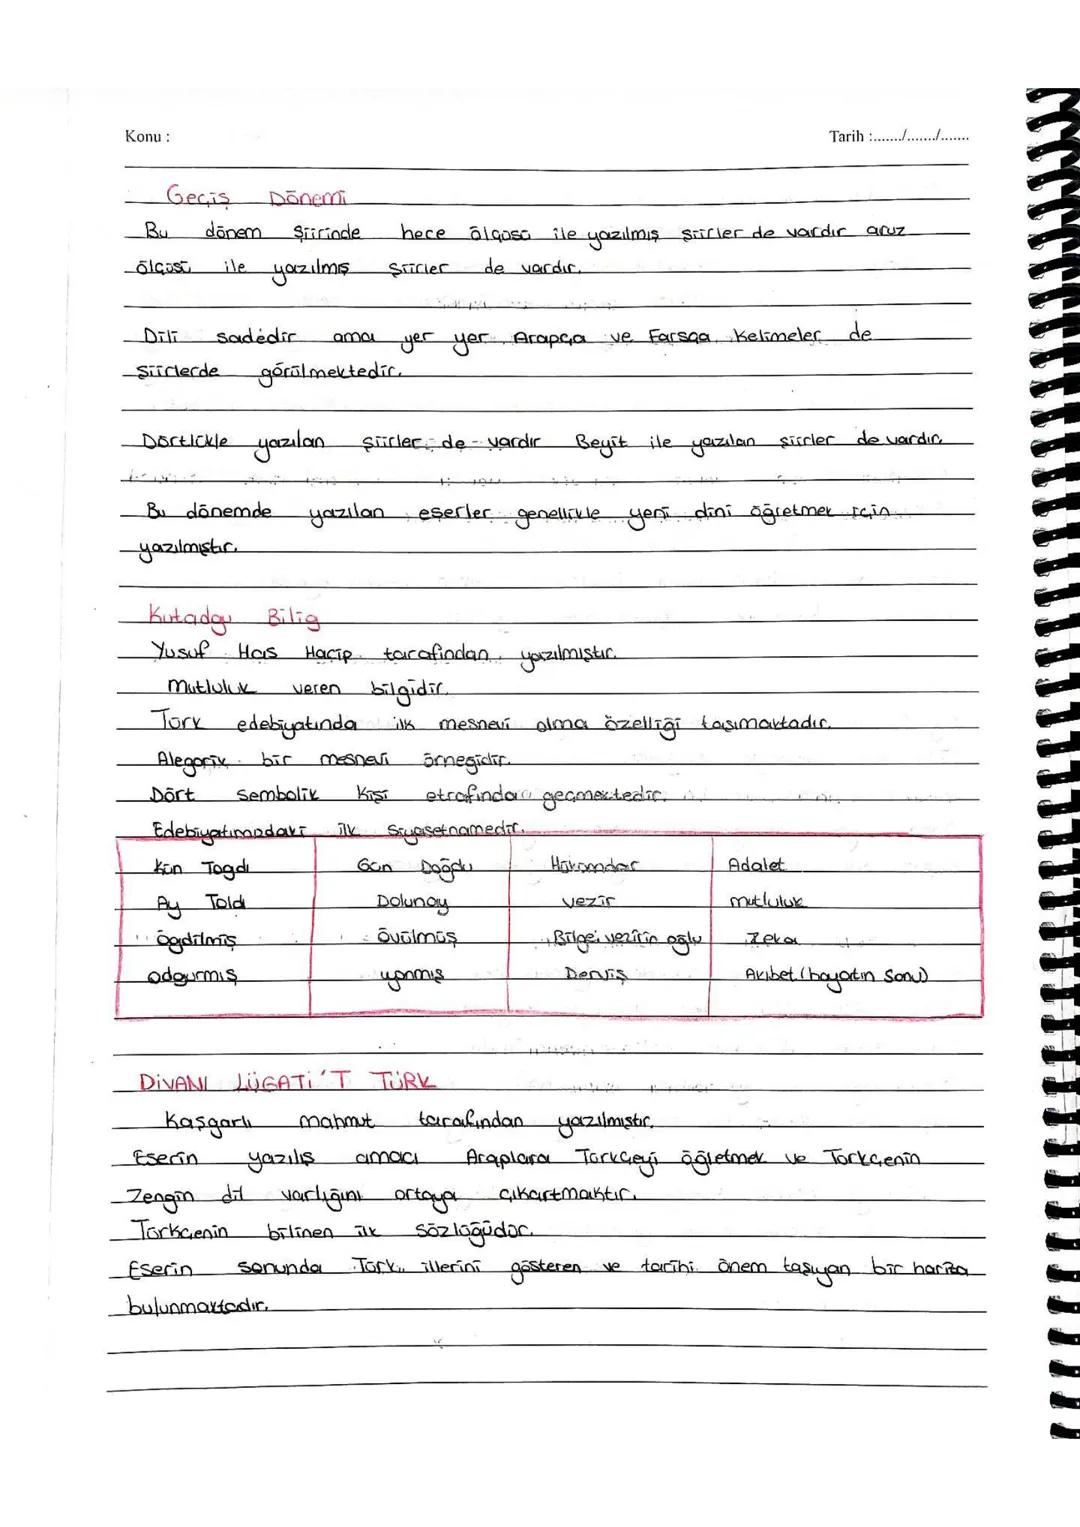 Konu :
Tarih :......./......./.......
Geçiş Dönemi
Bu dönem şiirinde hece ölçüsü ile yazılmış şiirler de vardır aruz
ölçüsü ile yazılmış şiirler de vardır.
Dili sadedir ama yer yer Arapça ve Farsça kelimeler de
şiirlerde görülmektedir.
Dörtlükle yazılan şiirler de vardır Beyit ile yazılan şiirler de vardır.
Bu dönemde yazılan eserler genellikle yeni dini öğretmek için
yazılmıştır.
Kutadgu Bilig
Yusuf Has Hacip tarafından yazılmıştır.
Mutluluk veren bilgidir.
Türk edebiyatında ilk mesnevi olma özelliği taşımaktadır.
Alegorik bir mesnevi örneğidir.
Dört sembolik kişi etrafında geçmektedir.
Edebiyatımızdaki ilk siyasetnamedir.
Kün Togdı Gün Doğdu Hükümdar Adalet
Ay Toldı Dolunay vezir mutluluk
ögdilmiş övülmüş Bilge, vezirin oğlu zeka
odgurmış yanmış Derviş Akıbet (hayatın sonu)
DİVANI LÜGATİ'T TÜRK
Kaşgarlı mahmut tarafından yazılmıştır.
Eserin yazılış amacı Araplara Türkçeyi öğretmek ve Türkçenin
zengin dil varlığını ortaya çıkartmaktır.
Türkçenin bilinen ilk sözlüğüdür.
Eserin sonunda Türk illerini gösteren ve tarihi önem taşıyan bir harita
bulunmaktadır.